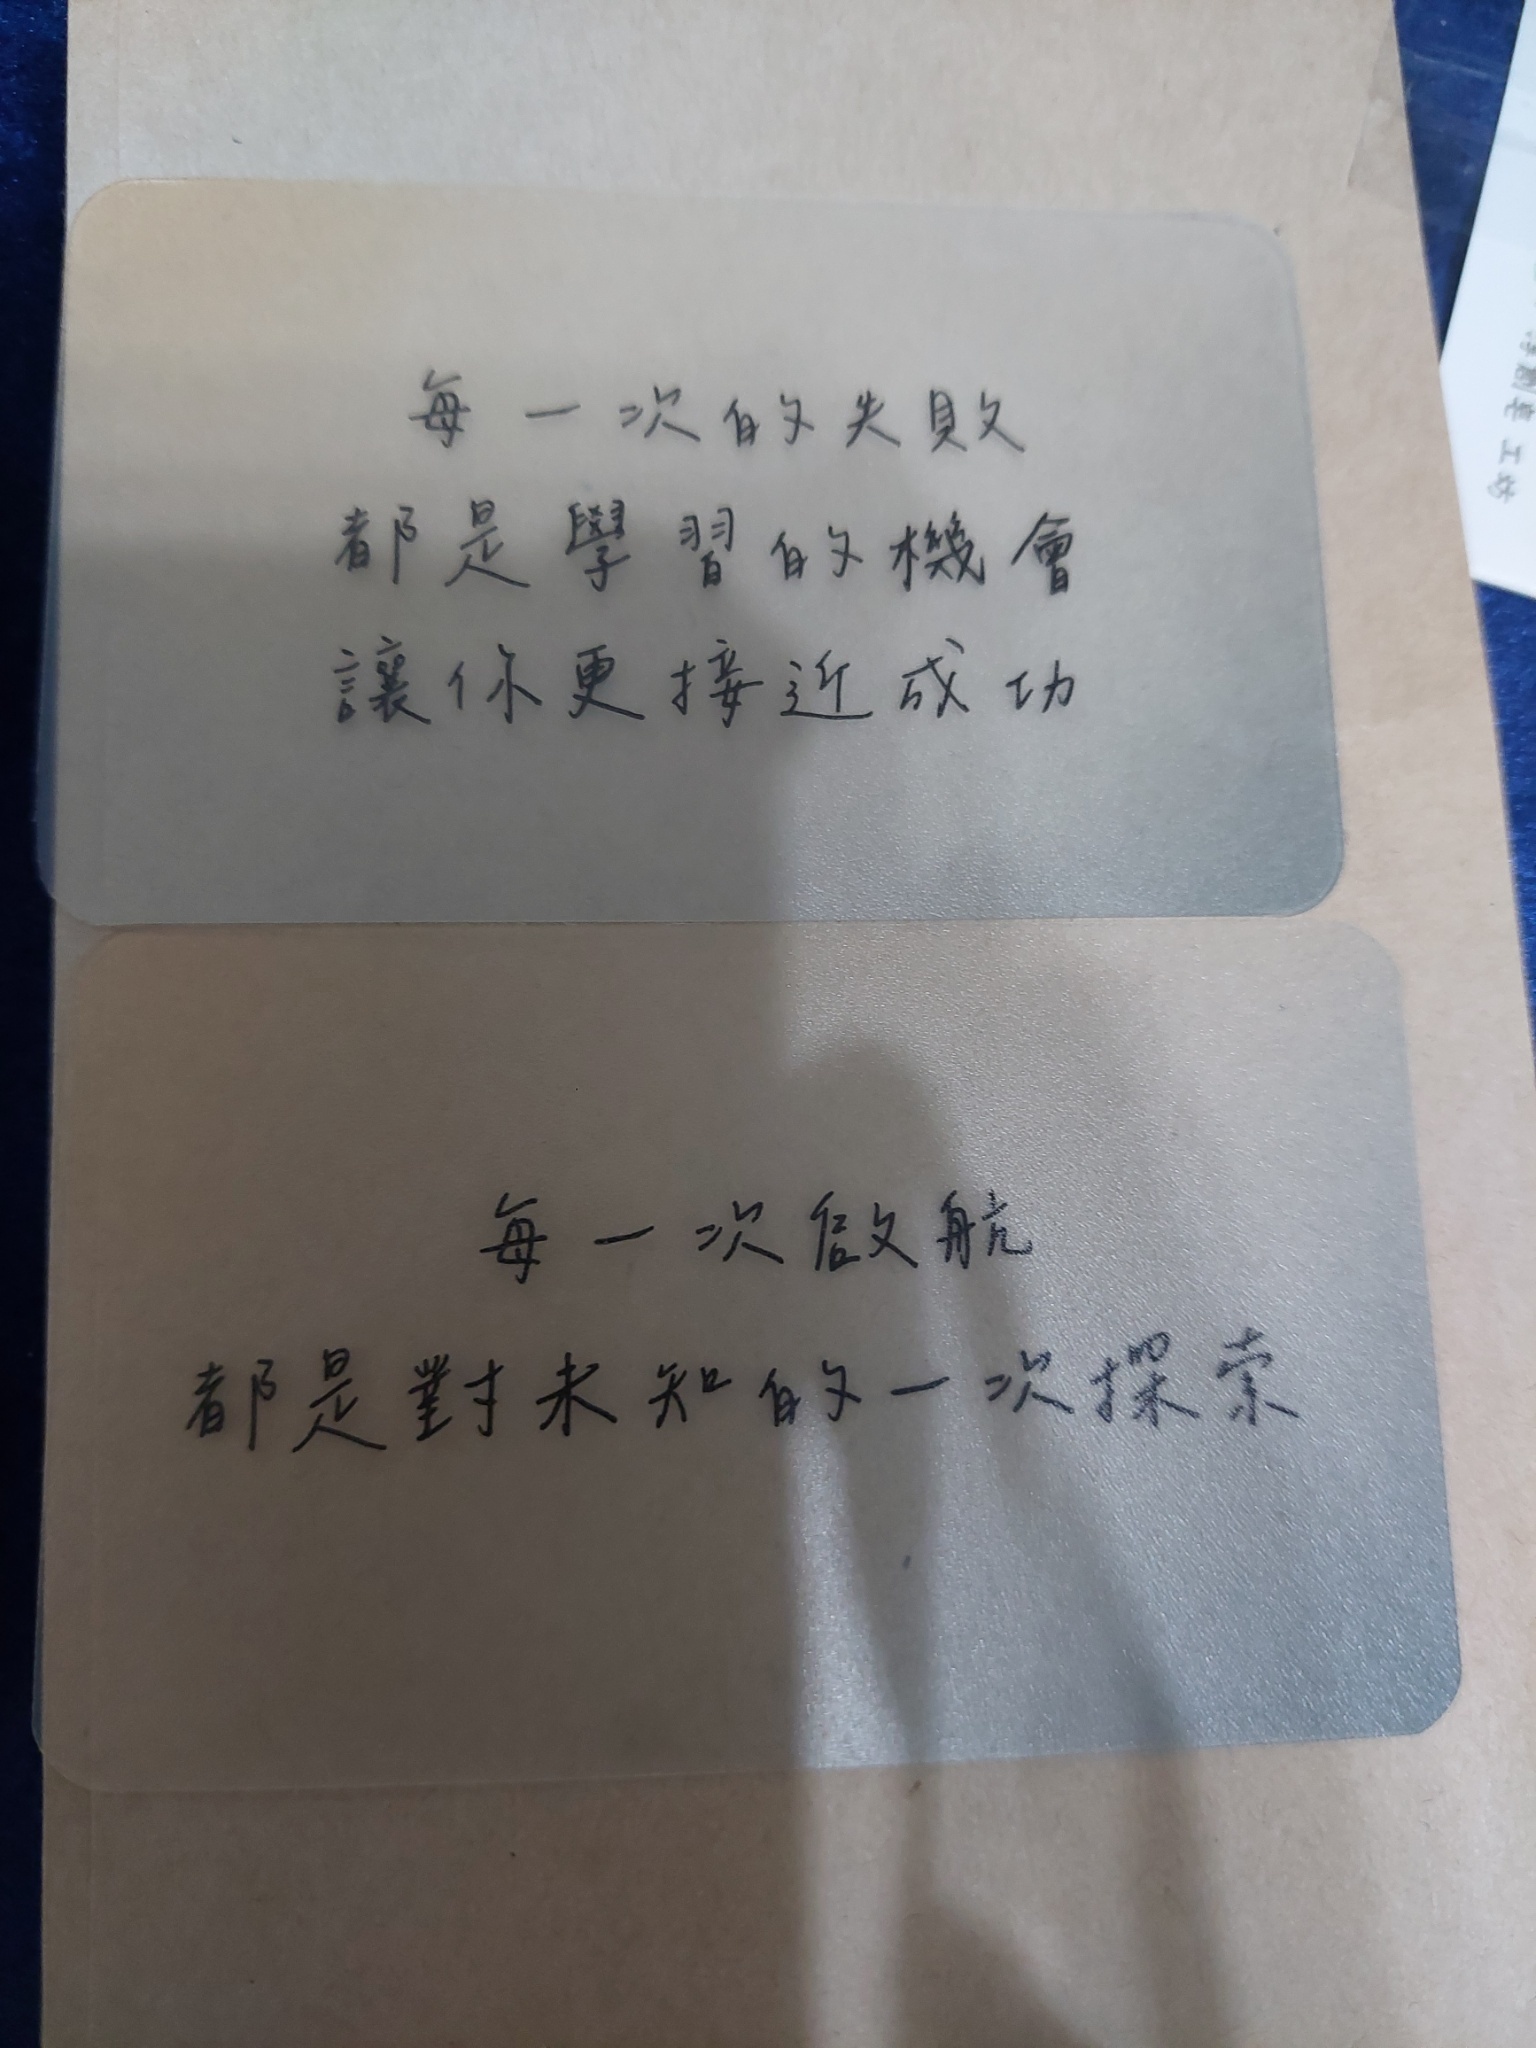 每一次的失敗
都是學習的機會
讓你更接近成功
每一次啟航
都是對未知的一次探索
創皂工坊